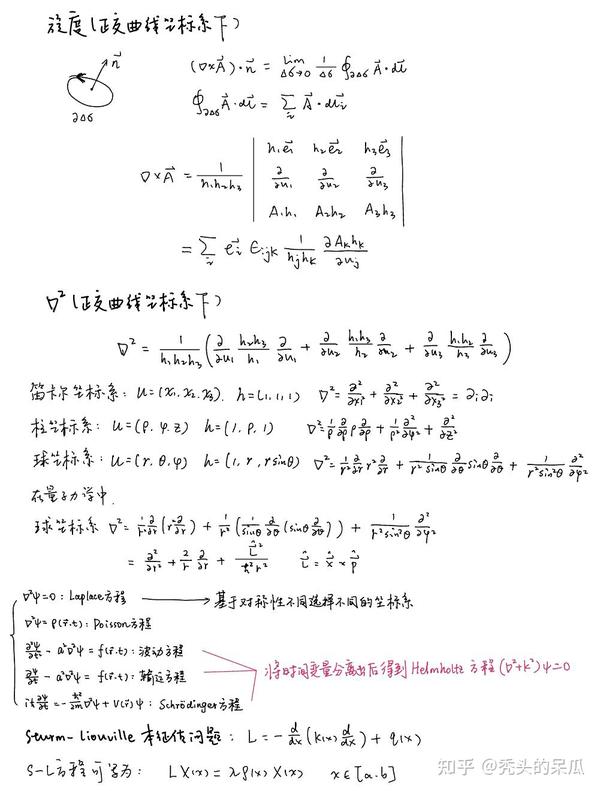 旋度(正交曲线坐标系下)
n⃗
∂Δσ
(∇×A⃗)·n⃗ = lim_{Δσ→0} 1/Δσ ∮_{∂Δσ} A⃗·dl⃗
∮_{∂Δσ} A⃗·dl⃗ = Σ_i A⃗·dl⃗_i
∇×A⃗ = 1/(h₁h₂h₃) | h₁e⃗₁ h₂e⃗₂ h₃e⃗₃ |
| ∂/∂u₁ ∂/∂u₂ ∂/∂u₃ |
| A₁h₁ A₂h₂ A₃h₃ |
= Σ_i e⃗_i ϵ_ijk 1/(h_j h_k) ∂A_k h_k/∂u_j
∇²(正交曲线坐标系下)
∇² = 1/(h₁h₂h₃) (∂/∂u₁ h₂h₃/h₁ ∂/∂u₁ + ∂/∂u₂ h₁h₃/h₂ ∂/∂u₂ + ∂/∂u₃ h₁h₂/h₃ ∂/∂u₃)
笛卡尔坐标系: u=(x₁,x₂,x₃). h=(1,1,1) ∇²=∂²/∂x₁² + ∂²/∂x₂² + ∂²/∂x₃² = ∂ᵢ∂ᵢ
柱坐标系: u=(ρ,φ,z) h=(1,ρ,1) ∇²=1/ρ ∂/∂ρ ρ ∂/∂ρ + 1/ρ² ∂²/∂φ² + ∂²/∂z²
球坐标系: u=(r,θ,φ) h=(1,r,rsinθ) ∇²=1/r² ∂/∂r r² ∂/∂r + 1/(r²sinθ) ∂/∂θ sinθ ∂/∂θ + 1/(r²sin²θ) ∂²/∂φ²
在量子力学中.
球坐标系 ∇²= 1/r² ∂/∂r (r² ∂/∂r) + 1/r² (1/sinθ ∂/∂θ (sinθ ∂/∂θ)) + 1/(r²sin²θ) ∂²/∂φ²
= ∂²/∂r² + 2/r ∂/∂r + L̂²/(ħ²r²) L̂ = x̂ × p̂
∇²ψ=0: Laplace方程 → 基于对称性不同选择不同的坐标系
∇²ψ=ρ(r⃗,t): Poisson方程
∂²ψ/∂t² - a²∇²ψ = f(r⃗,t): 波动方程
∂ψ/∂t - a²∇²ψ = f(r⃗,t): 输运方程
将时间变量分离出后得到Helmholtz方程(∇²+k²)ψ=0
iħ ∂ψ/∂t = -ħ²/2m ∇²ψ + V(r⃗)ψ: Schrödinger方程
Sturm-Liouville本征值问题: L = -d/dx (k(x) d/dx) + q(x)
S-L方程可写为: LX(x) = λρ(x)X(x) x∈[a,b]
知乎 @秃头的呆瓜